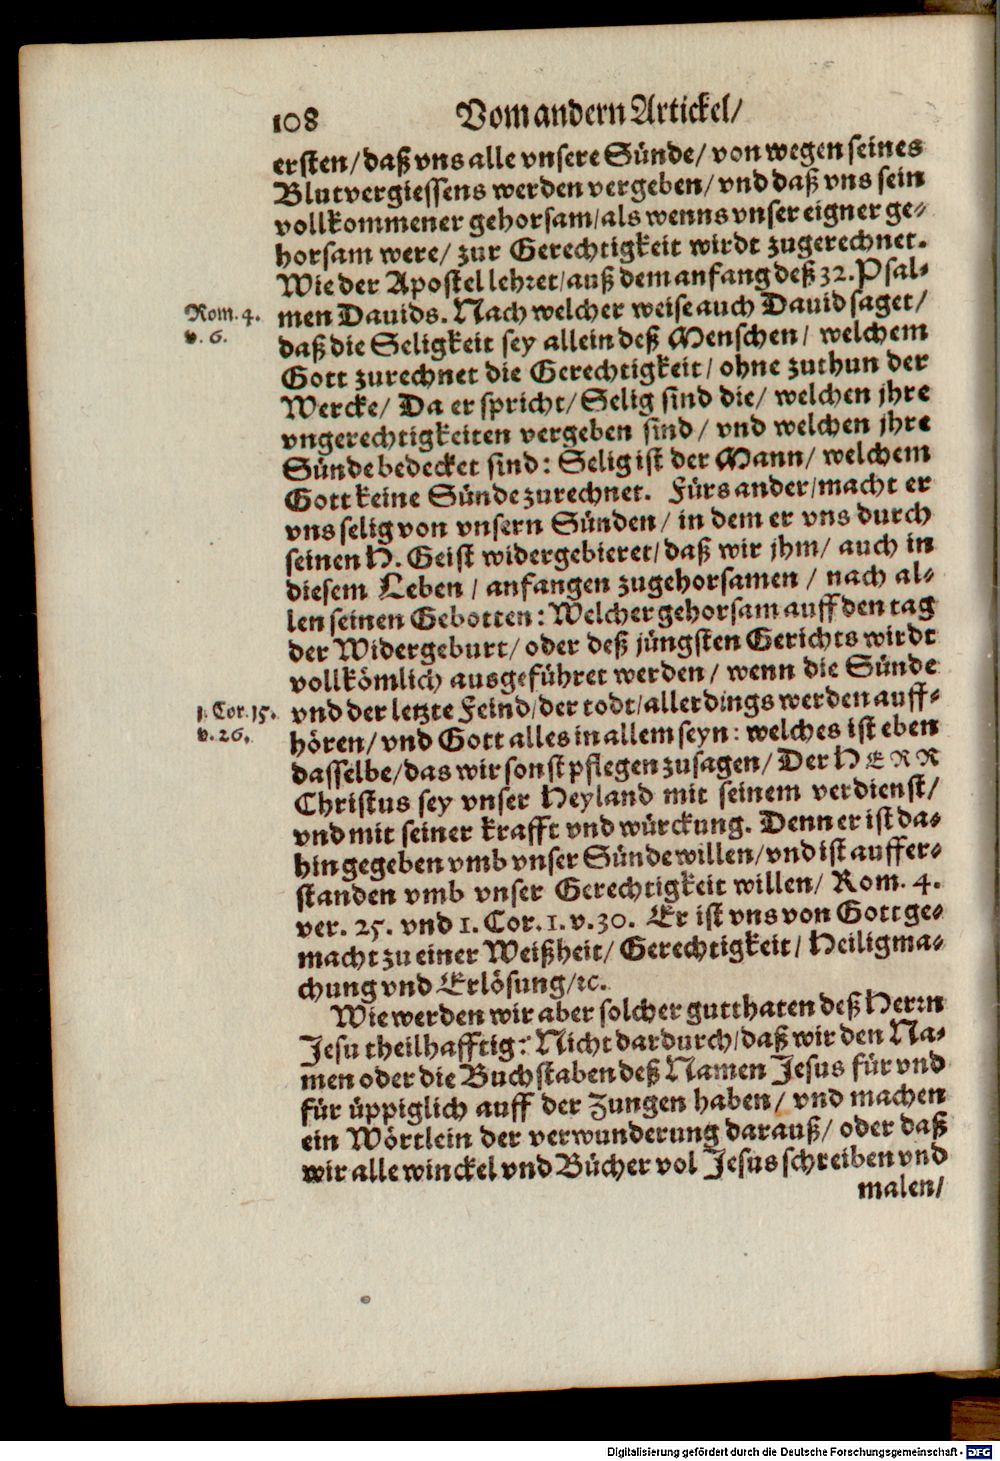 108 Vom andern Artickel/
ersten/ daß vns alle vnsere Sünde/ von wegen seines
Blutvergiessens werden vergeben/ vnd daß vns sein
vollkommener gehorsam/ als wenns vnser eigner ge-
horsam were/ zur Gerechtigkeit wirdt zugerechnet.
Wie der Apostel lehret/ auß dem anfang deß 32. Psal-
Rom. 4. men Dauids. Nach welcher weise auch Dauid saget/
v. 6. daß die Seligkeit sey allein deß Menschen/ welchem
Gott zurechnet die Gerechtigkeit/ ohne zuthun der
Wercke/ Da er spricht/ Selig sind die/ welchen jhre
vngerechtigkeiten vergeben sind/ vnd welchen jhre
Sünde bedecket sind: Selig ist der Mann/ welchem
Gott keine Sünde zurechnet. Fürs ander/ macht er
vns selig von vnsern Sünden/ in dem er vns durch
seinen H. Geist widergebieret/ daß wir jhm/ auch in
diesem Leben/ anfangen zugehorsamen/ nach al-
len seinen Gebotten: Welcher gehorsam auff den tag
der Widergeburt/ oder deß jüngsten Gerichts wirdt
vollkömlich ausgeführet werden/ wenn die Sünde
1. Cor. 15. vnd der letzte Feind/ der todt/ allerdings werden auff-
v. 26. hören/ vnd Gott alles in allem seyn: welches ist eben
dasselbe/ das wir sonst pflegen zusagen/ Der HERR
Christus sey vnser Heyland mit seinem verdienst/
vnd mit seiner krafft vnd würckung. Denn er ist da-
hin gegeben vmb vnser Sünde willen/ vnd ist auffer-
standen vmb vnser Gerechtigkeit willen/ Rom. 4.
ver. 25. vnd 1. Cor. 1. v. 30. Er ist vns von Gott ge-
macht zu einer Weißheit/ Gerechtigkeit/ Heiligma-
chung vnd Erlösung/ ꝛc.
Wie werden wir aber solcher gutthaten deß Herrn
Jesu theilhafftig? Nicht dardurch/ daß wir den Na-
men oder die Buchstaben deß Namen Jesus für vnd
für üppiglich auff der Zungen haben/ vnd machen
ein Wörtlein der verwunderung darauß/ oder daß
wir alle winckel vnd Bücher vol Jesus schreiben vnd
malen/
Digitalisierung gefördert durch die Deutsche Forschungsgemeinschaft - DFG